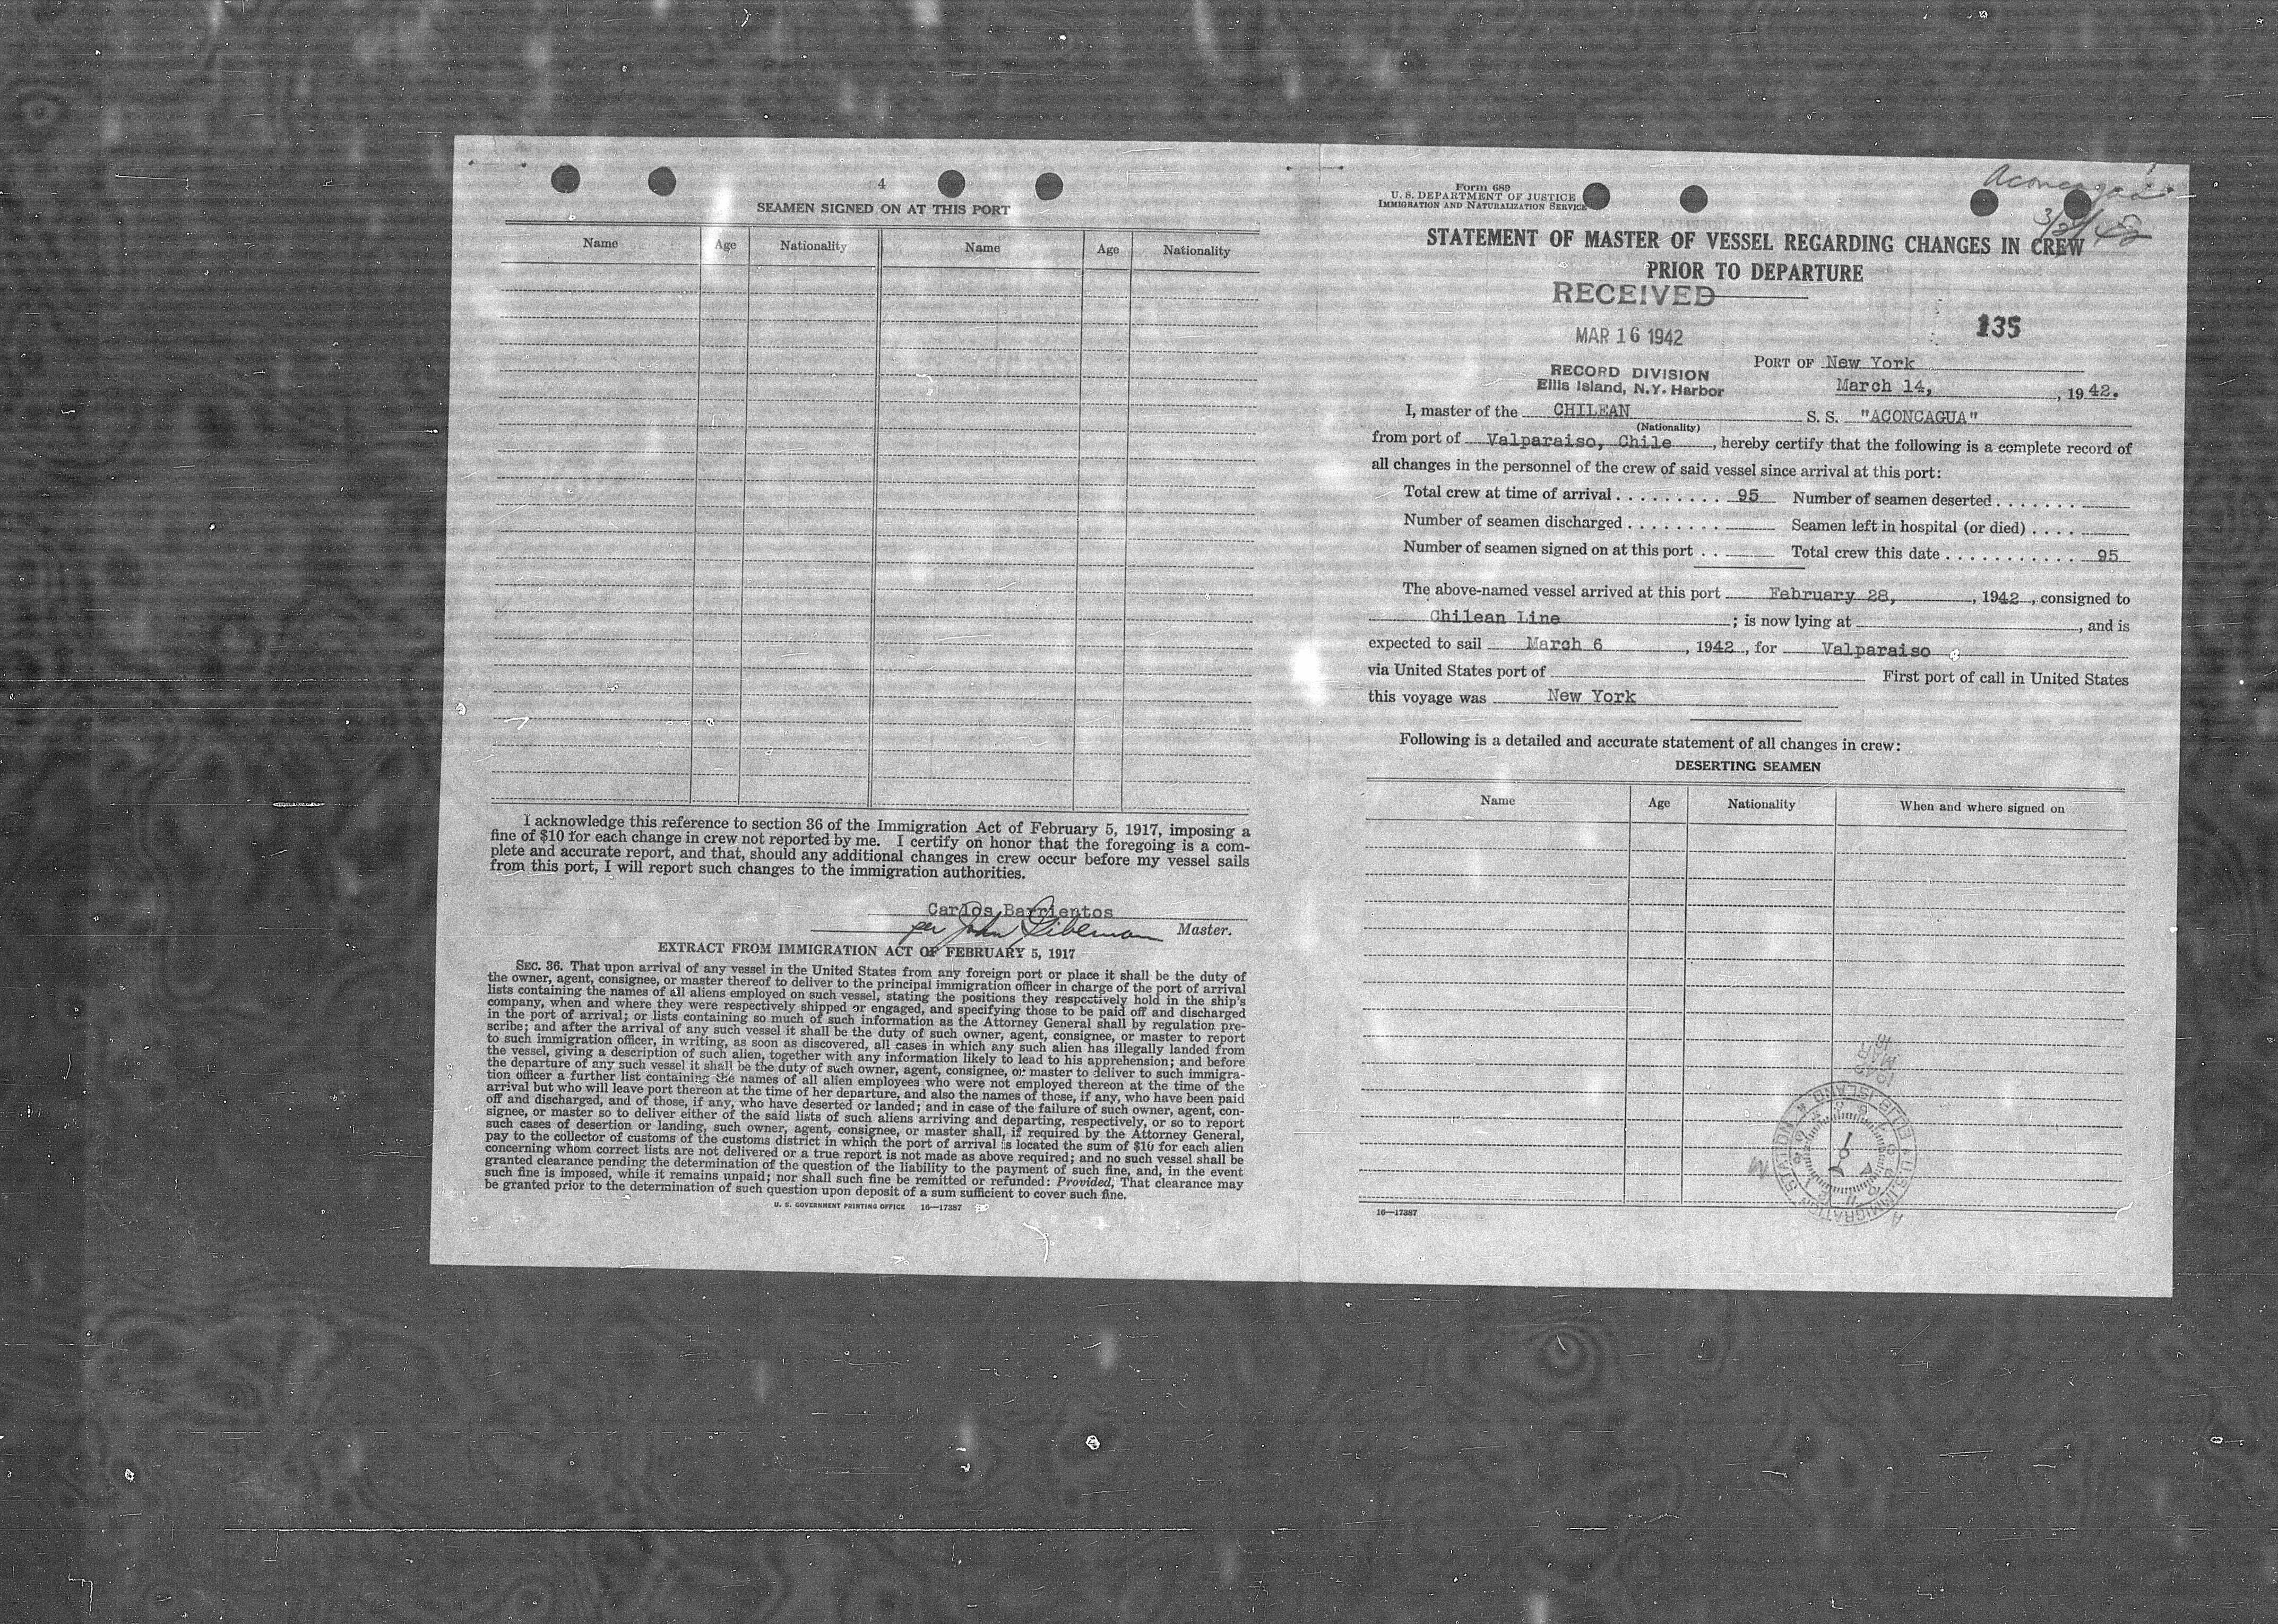 4
SEAMEN SIGNED ON AT THIS PORT
Name Age Nationality Name Age Nationality
I acknowledge this reference to section 36 of the Immigration Act of February 5, 1917, imposing a
fine of $10 for each change in crew not reported by me. I certify on honor that the foregoing is a com-
plete and accurate report, and that, should any additional changes in crew occur before my vessel sails
from this port, I will report such changes to the immigration authorities.
Carlos Barrientos
per John Master.
EXTRACT FROM IMMIGRATION ACT OF FEBRUARY 5, 1917
SEC. 36. That upon arrival of any vessel in the United States from any foreign port or place it shall be the duty of
the owner, agent, consignee, or master thereof to deliver to the principal immigration officer in charge of the port of arrival
lists containing the names of all aliens employed on such vessel, stating the positions they respectively hold in the ship's
company, when and where they were respectively shipped or engaged, and specifying those to be paid off and discharged
in the port of arrival; or lists containing so much of such information as the Attorney General shall by regulation pre-
scribe; and after the arrival of any such vessel it shall be the duty of such owner, agent, consignee, or master to report
to such immigration officer, in writing, as soon as discovered, all cases in which any such alien has illegally landed from
the vessel, giving a description of such alien, together with any information likely to lead to his apprehension; and before
the departure of any such vessel it shall be the duty of such owner, agent, consignee, or master to deliver to such immigra-
tion officer a further list containing the names of all alien employees who were not employed thereon at the time of the
arrival but who will leave port thereon at the time of her departure, and also the names of those, if any, who have been paid
off and discharged, and of those, if any, who have deserted or landed; and in case of the failure of such owner, agent, con-
signee, or master so to deliver either of the said lists of such aliens arriving and departing, respectively, or so to report
such cases of desertion or landing, such owner, agent, consignee, or master shall, if required by the Attorney General,
pay to the collector of customs of the customs district in which the port of arrival is located the sum of $10 for each alien
concerning whom correct lists are not delivered or a true report is not made as above required; and no such vessel shall be
granted clearance pending the determination of the question of the liability to the payment of such fine, and, in the event
such fine is imposed, while it remains unpaid; nor shall such fine be remitted or refunded: Provided, That clearance may
be granted prior to the determination of such question upon deposit of a sum sufficient to cover such fine.
U. S. GOVERNMENT PRINTING OFFICE 16—17387
Form 689
U. S. DEPARTMENT OF JUSTICE
IMMIGRATION AND NATURALIZATION SERVICE
Aconcagua
STATEMENT OF MASTER OF VESSEL REGARDING CHANGES IN CREW
PRIOR TO DEPARTURE
RECEIVED
MAR 16 1942
135
RECORD DIVISION
Ellis Island, N.Y. Harbor
PORT OF New York
March 14, , 1942.
I, master of the CHILEAN S. S. "ACONCAGUA"
(Nationality)
from port of Valparaiso, Chile , hereby certify that the following is a complete record of
all changes in the personnel of the crew of said vessel since arrival at this port:
Total crew at time of arrival . . . . . . . . . 95 Number of seamen deserted . . . . . . .
Number of seamen discharged . . . . . . . . Seamen left in hospital (or died) . . . .
Number of seamen signed on at this port . . Total crew this date . . . . . . . . . . . 95
The above-named vessel arrived at this port February 28, , 1942 , consigned to
Chilean Line ; is now lying at , and is
expected to sail March 6 , 1942 , for Valparaiso
via United States port of First port of call in United States
this voyage was New York
Following is a detailed and accurate statement of all changes in crew:
DESERTING SEAMEN
Name Age Nationality When and where signed on
1942
MAR
16
U.S. IMMIGRATION STATION ★ ELLIS ISLAND ★
16—17387